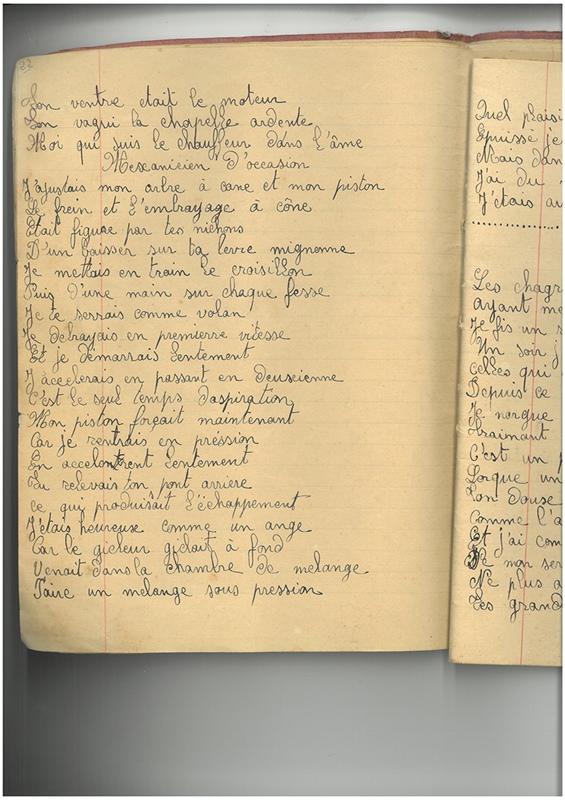 22
Ton ventre etait le moteur
Ton vagui la chapelle ardente
Moi qui suis le chauffeur dans l'âme
Mescanicien D'occasion
J'ajustais mon arbre à cane et mon piston
Le frein et l'embrayage à cône
Etait figure par tes nichons
D'un baiser sur ta levre mignonne
Je mettais en train le croisillon
Puis D'une main sur chaque fesse
Je te serrais comme volan
Je debrayais en premierre vitesse
Et je démarrais lentement
J'accelerais en passant en deuscienne
C'est le seul temps d'aspiration
Mon piston forçait maintenant
Car je rentrais en pression
En accelontrent lentement
Tu relevais ton pont arriere
ce qui produisait l'échappement
J'étais heureuse comme un ange
Car le gicleur giclait à fond
Venait dans la chambre de melange
Faire un melange sous pression
Quel plaisi
Epuisé je
Mais dan
J'ai du
J'étais au
Les chagr
ayant me
Je fis un s
Un soir j
celles qui
Depuis ce
Je nargue
Vraiment
C'est un p
Lorque un
Ton douse
comme l'a
Et j'ai com
De mon ser
Ne plus a
Tes grand